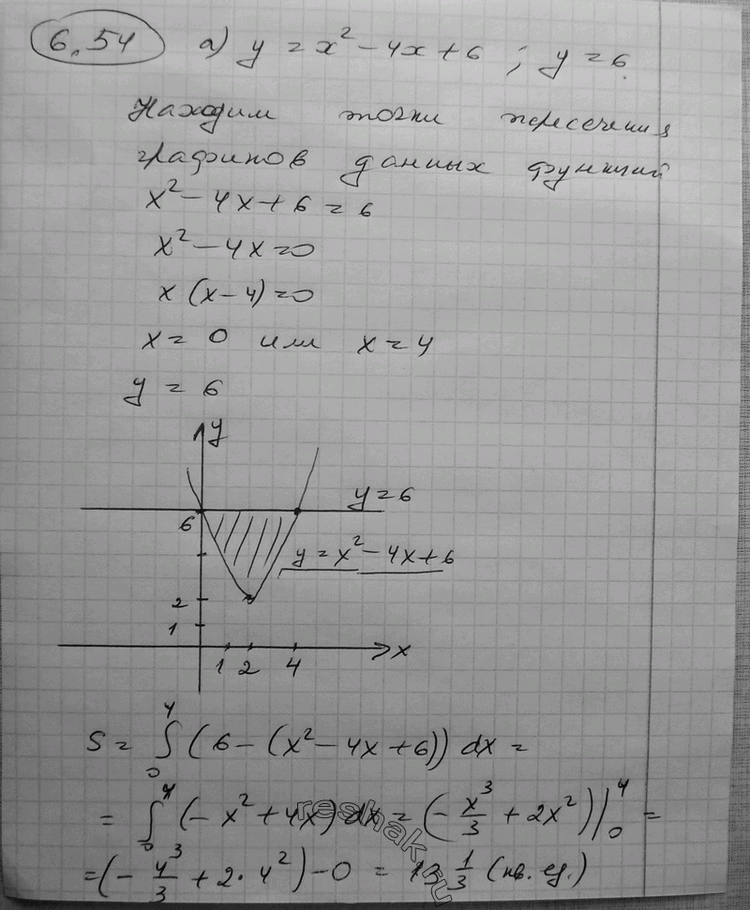 6.54 а) y = x² - 4x + 6 ; y = 6.
Находим точки пересечения
графиков данных функций
x² - 4x + 6 = 6
x² - 4x = 0
x (x - 4) = 0
x = 0 или x = 4
y = 6
y
y = 6
6
y = x² - 4x + 6
2
1
x
1 2 4
S = ∫₀⁴ (6 - (x² - 4x + 6)) dx =
= ∫₀⁴ (- x² + 4x) dx = (- x³/3 + 2x²) |₀⁴ =
= (- 4³/3 + 2 · 4²) - 0 = 13 1/3 (кв. ед.)
reshak.ru